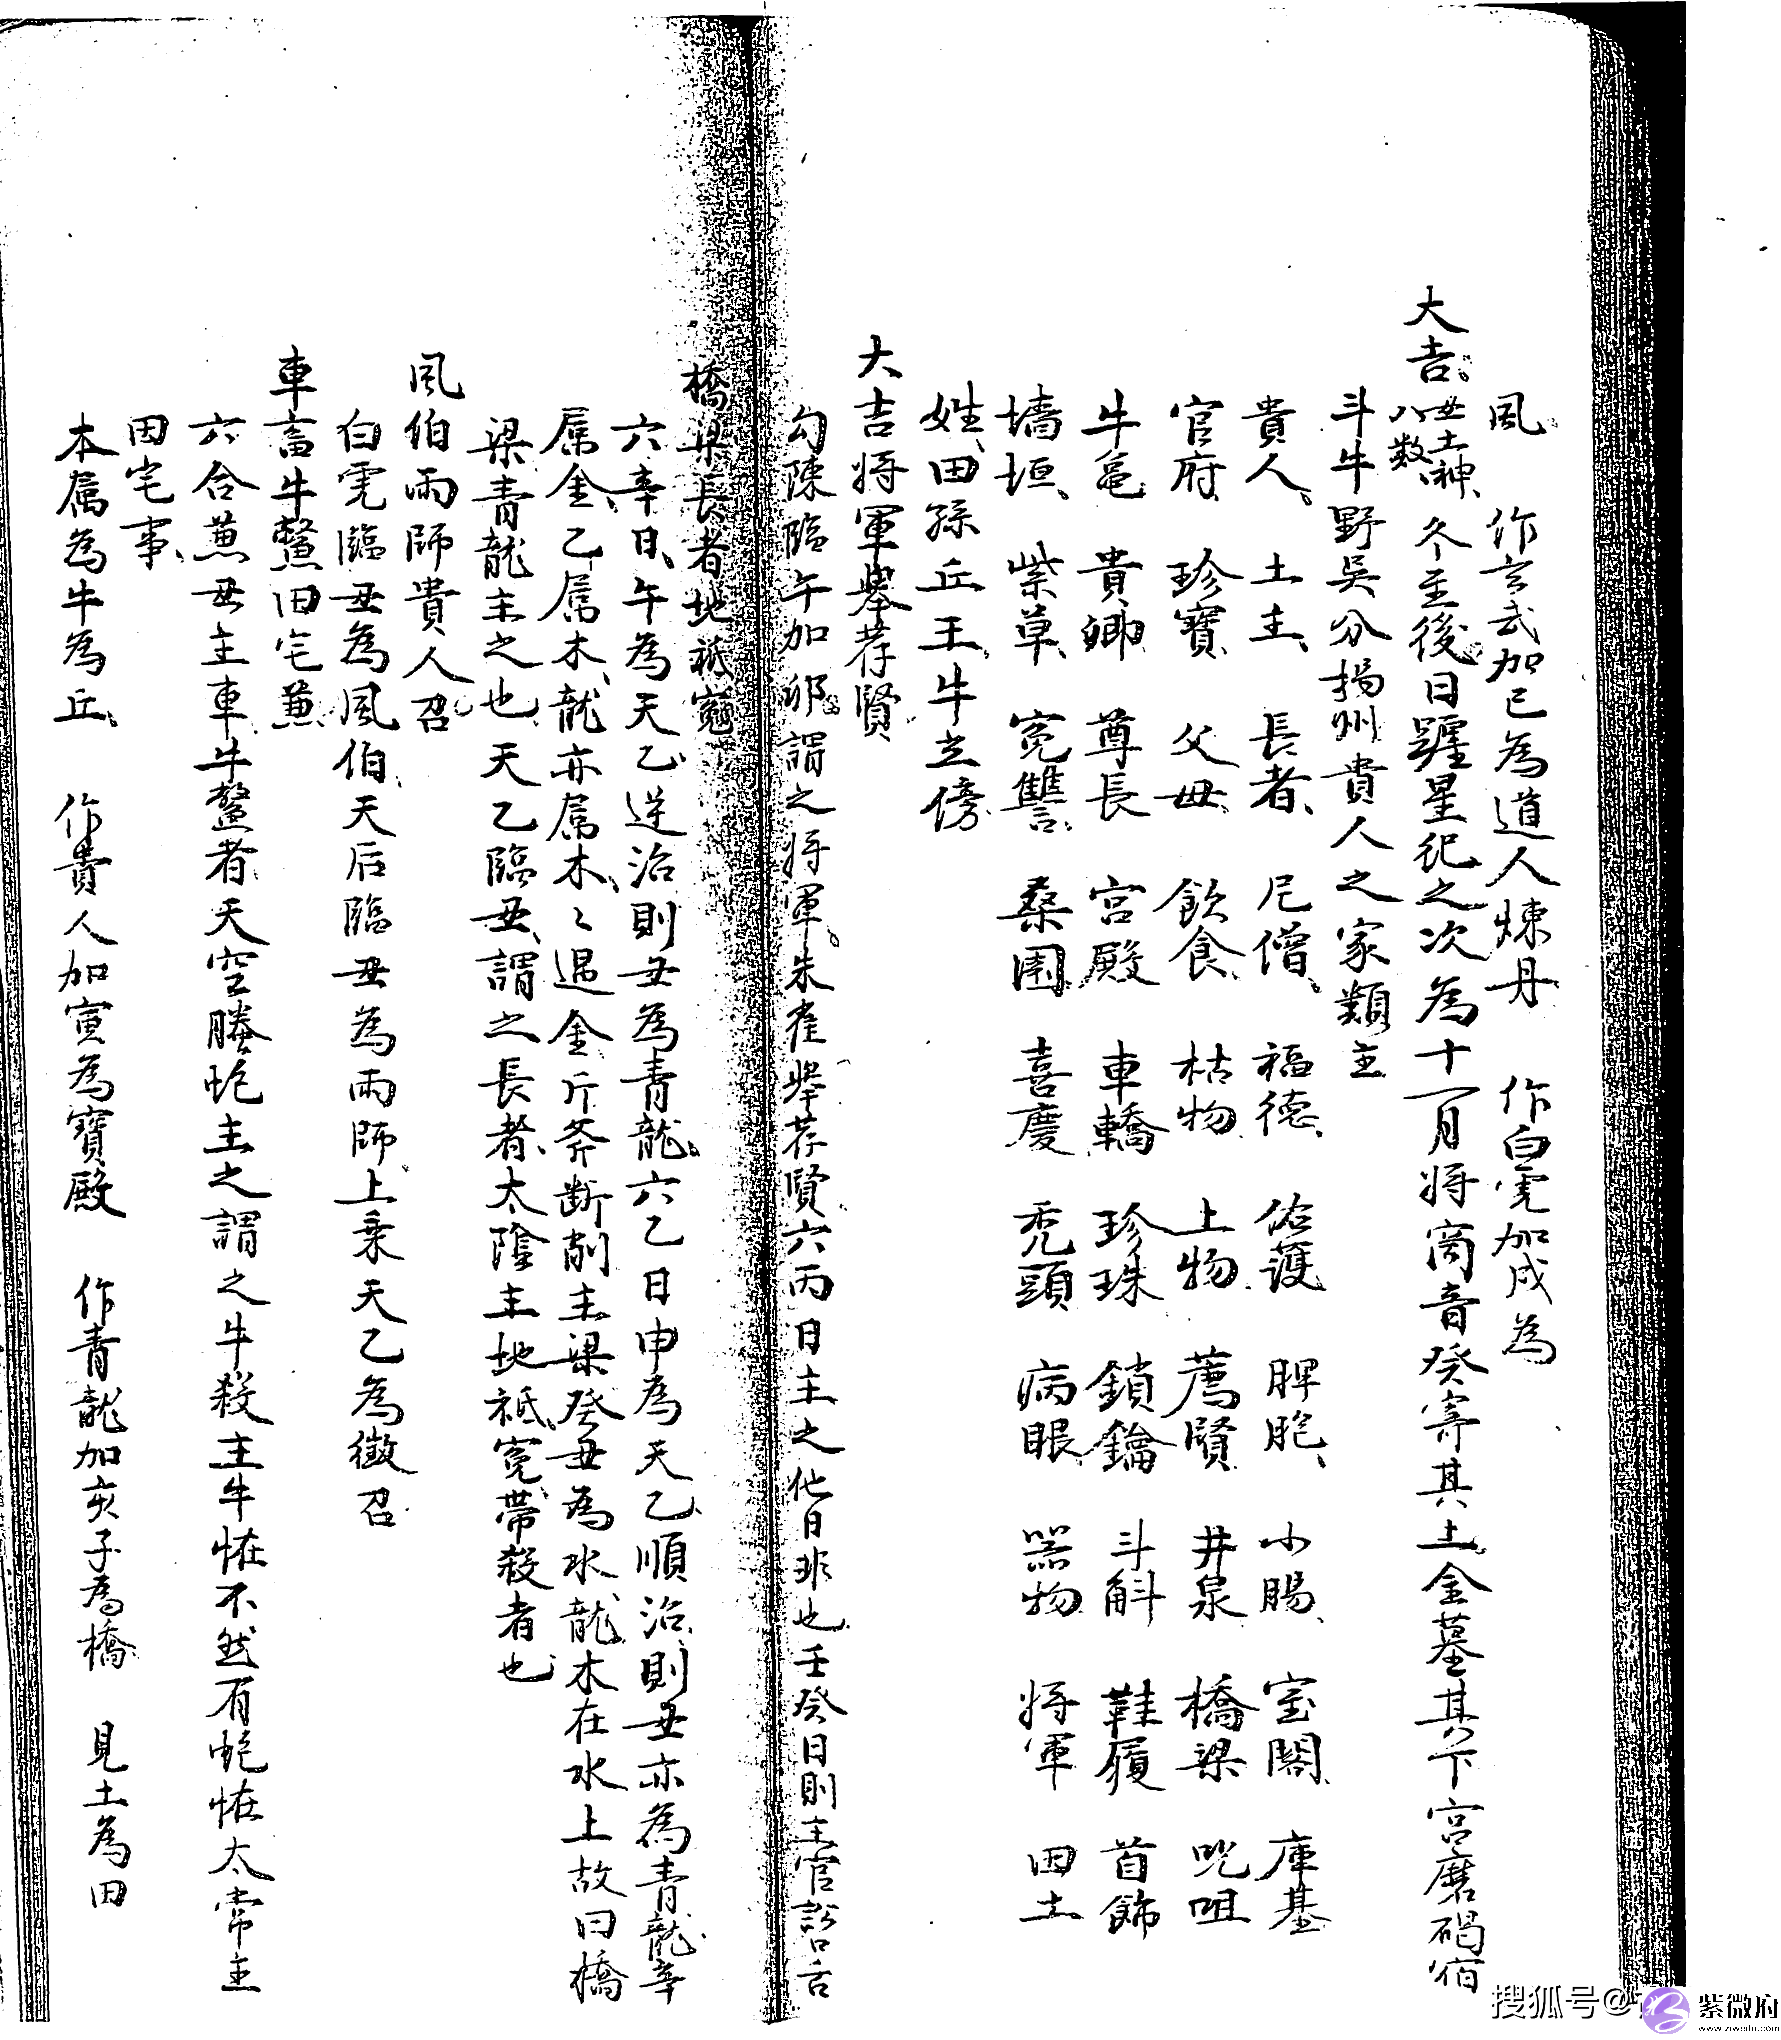 風 作玄武加巳為道人煉丹 作白虎加戌為
大吉 丑土神 八数 冬至後日躔星纪之次為十一月将商音癸寄其上金墓其下宫磨碣宿
斗牛野吴分揚州貴人之家類主
貴人 土主 長者 尼僧 福德 佑護 脾胞 小腸 宝閣 庫基
官府 珍寶 父母 飲食 枯物 上物 薦賢 井泉 橋梁 咒咀
牛黾 貴卿 尊長 宫殿 車轎 珍珠 鎖鑰 斗斛 鞋履 首飾
墙垣 柴草 冤讐 桑園 喜慶 秃頭 病眼 器物 将軍 田土
姓 田孫丘王牛立傍
大吉将軍举荐賢
勾陳臨午加卯謂之将軍朱雀举荐賢六丙日主之他日非也壬癸日則主官訟口舌
橋梁長者地祇冤
六辛日午為天乙逆治則丑為青龍六乙日申為天乙順治則丑亦為青龍辛
属金乙属木龍亦属木々遇金斤斧断削主梁癸丑為水龍木在水上故曰橋
梁青龍主之也天乙臨丑謂之長者太陰主地祇冤带殺者也
風伯雨師貴人召
白虎臨丑為風伯天后臨丑為雨師上乘天乙為徵召
車畜牛鱉田宅兼
六合兼丑主車牛鱉者天空螣蛇主之謂之牛殺主牛恠不然有蛇恠太常主
田宅事
本属為牛為丘 作貴人加寅為寶殿 作青龍加亥子為橋 見土為田
搜狐号@
紫微府
www.ziweifu.com